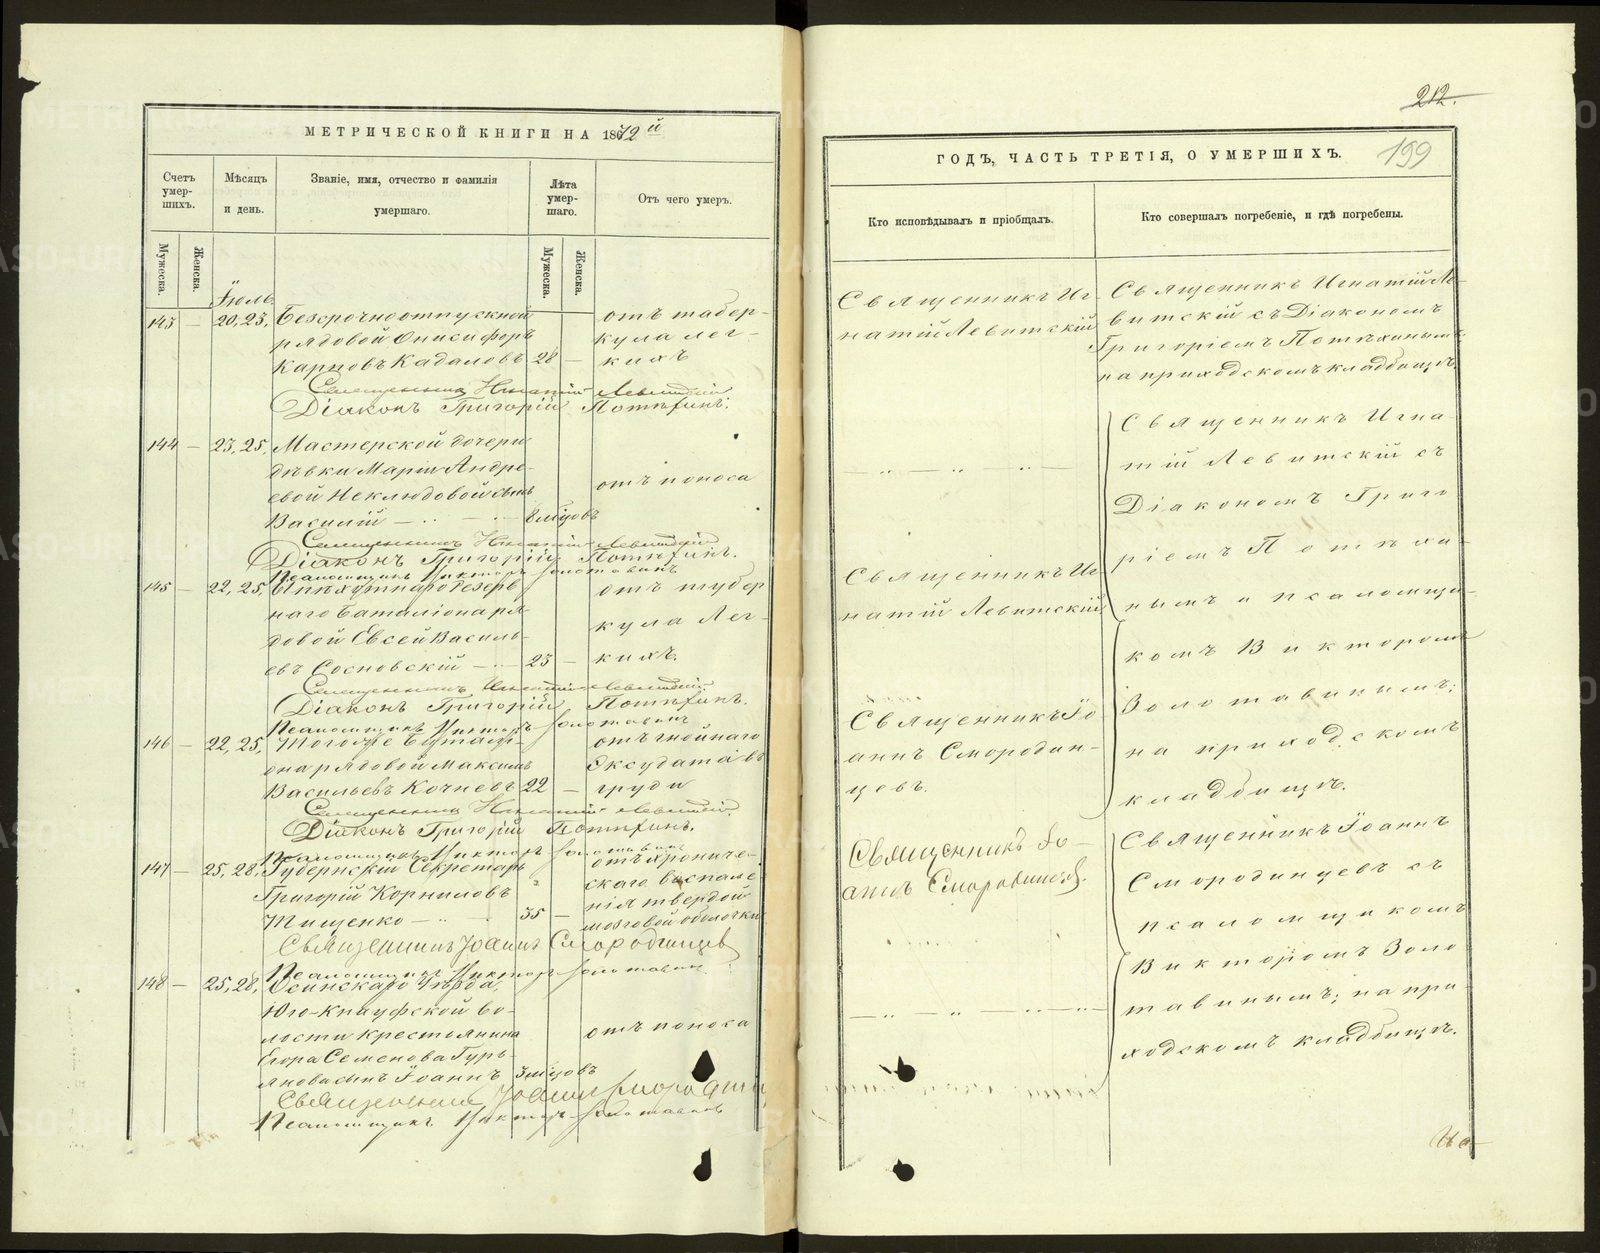 МЕТРИЧЕСКОЙ КНИГИ НА 1872й
Счетъ умершихъ.
Мѣсяцъ и день.
Званіе, имя, отчество и фамилія умершаго.
Лѣта умершаго.
Отъ чего умеръ.
Мужеска.
Женска.
Мужеска.
Женска.
Іюль
143 — 20, 23, Безсрочноотпускной
рядовой Онисифоръ
Карповъ Кадаловъ 28 —
отъ тубер-
кула лег-
кихъ
Священникъ Игнатій Левитскій
Діаконъ Григорій Потѣхинъ.
144 — 23, 25, Мастерской дочери
дѣвки Маріи Андре-
евой Неклюдовой сынъ
Василій — 8 мѣцовъ
отъ поноса
Священникъ Игнатій Левитскій
Діаконъ Григорій Потѣхинъ.
Псаломщикъ Викторъ Золотавинъ
145 — 22, 25, пѣхотнаго резерв
наго баталіона ря
довой Евсей Василь-
евъ Сосновскій — 23 —
отъ тубер
кула лег-
кихъ.
Священникъ Игнатій Левитскій
Діаконъ Григорій Потѣхинъ.
Псаломщикъ Викторъ Золотавинъ
146 — 22, 25, Тогоже батал-
она рядовой Максимъ
Васильевъ Кочневъ 22 —
отъ гнойнаго
эксудата въ
груди
Священникъ Игнатій Левитскій
Діаконъ Григорій Потѣхинъ.
Псаломщикъ Викторъ Золотавинъ
147 — 25, 28, Губернскій Секретарь
Григорій Корниловъ
Тищенко — 35 —
отъ хрониче-
скаго воспале
нія твердой
мозговой оболочки
Священникъ Іоаннъ Смородинцевъ
Псаломщикъ Викторъ Золотавинъ.
148 — 25, 28, Осинскаго Уѣзда,
Юго-Кнауфской во-
лости крестьянина
Егора Семенова Гурь-
янова сынъ Іоаннъ 3 мѣцовъ
отъ поноса
Священникъ Іоаннъ Смородин
Псаломщикъ Викторъ Золотавинъ
212.
199
ГОДЪ, ЧАСТЬ ТРЕТІЯ, О УМЕРШИХЪ.
Кто исповѣдывалъ и пріобщалъ.
Кто совершалъ погребеніе, и гдѣ погребены.
Священникъ Иг-
натій Левитскій
Священникъ Игнатій Ле-
витскій съ Діакономъ
Григоріемъ Потѣхинымъ
на приходскомъ кладбищѣ.
Священникъ Иг-
натій Левитскій
Священникъ Іо
аннъ Смородин-
цевъ.
Священникъ Игна-
тій Левитскій съ
Діакономъ Григо
ріемъ Потѣхи-
нымъ и псаломщи-
комъ Викторомъ
Золотавинымъ;
на приходскомъ
кладбищѣ.
Священникъ Іо-
аннъ Смородинцевъ.
Священникъ Іоаннъ
Смородинцевъ съ
псаломщикомъ
Викторомъ Золо
тавинымъ; на при-
ходскомъ кладбищѣ.